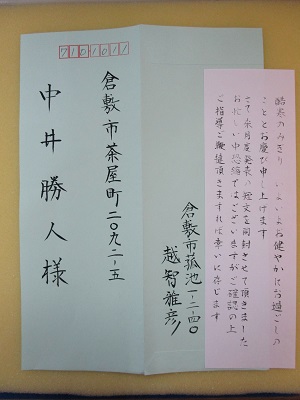 7101011
倉敷市茶屋町二〇九二-五
中井勝人様
倉敷市菰池一-二-四〇
越智雅彦
酷暑のみぎり いよいよお健やかにお過ごしの
こととお慶び申し上げます
さて 来月度発表の短文を同封させて頂きました
お忙しい中恐縮ではございますがご確認の上
ご指導ご鞭撻頂きますれば幸いに存じます